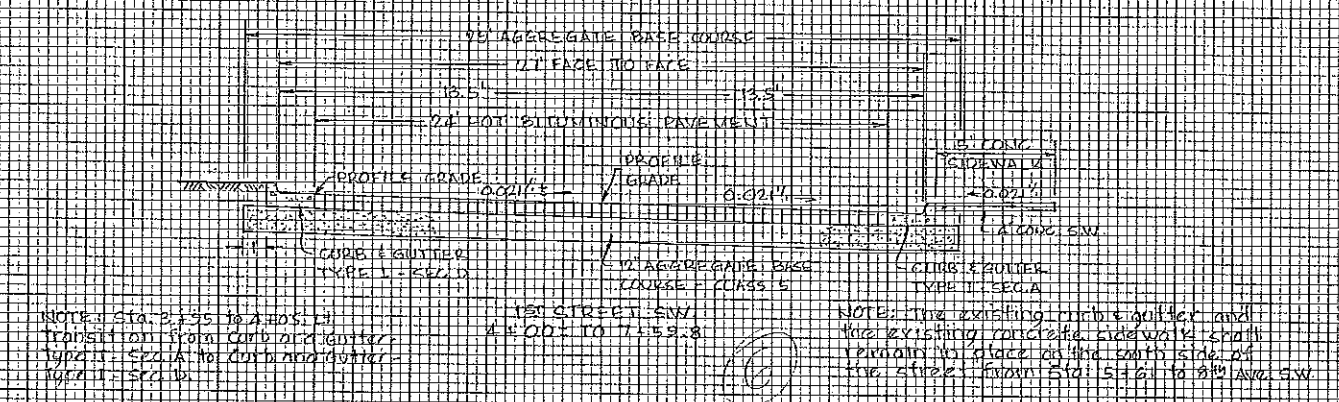 AGGREGATE BASE COURSE
27' FACE TO FACE
13.5' 13.5'
24' HOT BITUMINOUS PAVEMENT
5' CONC.
SIDEWALK
PROFILE GRADE
PROFILE
GRADE
0.021'/'
0.021'/'
0.021'/'
4" CONC. S.W.
CURB & GUTTER
TYPE I - SEC. D
12" AGGREGATE BASE
COURSE - CLASS 5
CURB & GUTTER
TYPE I - SEC. A
1ST STREET S.W.
4+00± TO 7+59.8
NOTE: Sta. 3+95 to 4+05 Lt.
transition from curb and gutter
Type I - Sec. A to curb and gutter -
Type I - Sec. D.
NOTE: The existing curb & gutter and
the existing concrete sidewalk shall
remain in place on the south side of
the street from Sta. 5+61 to 8th Ave. S.W.